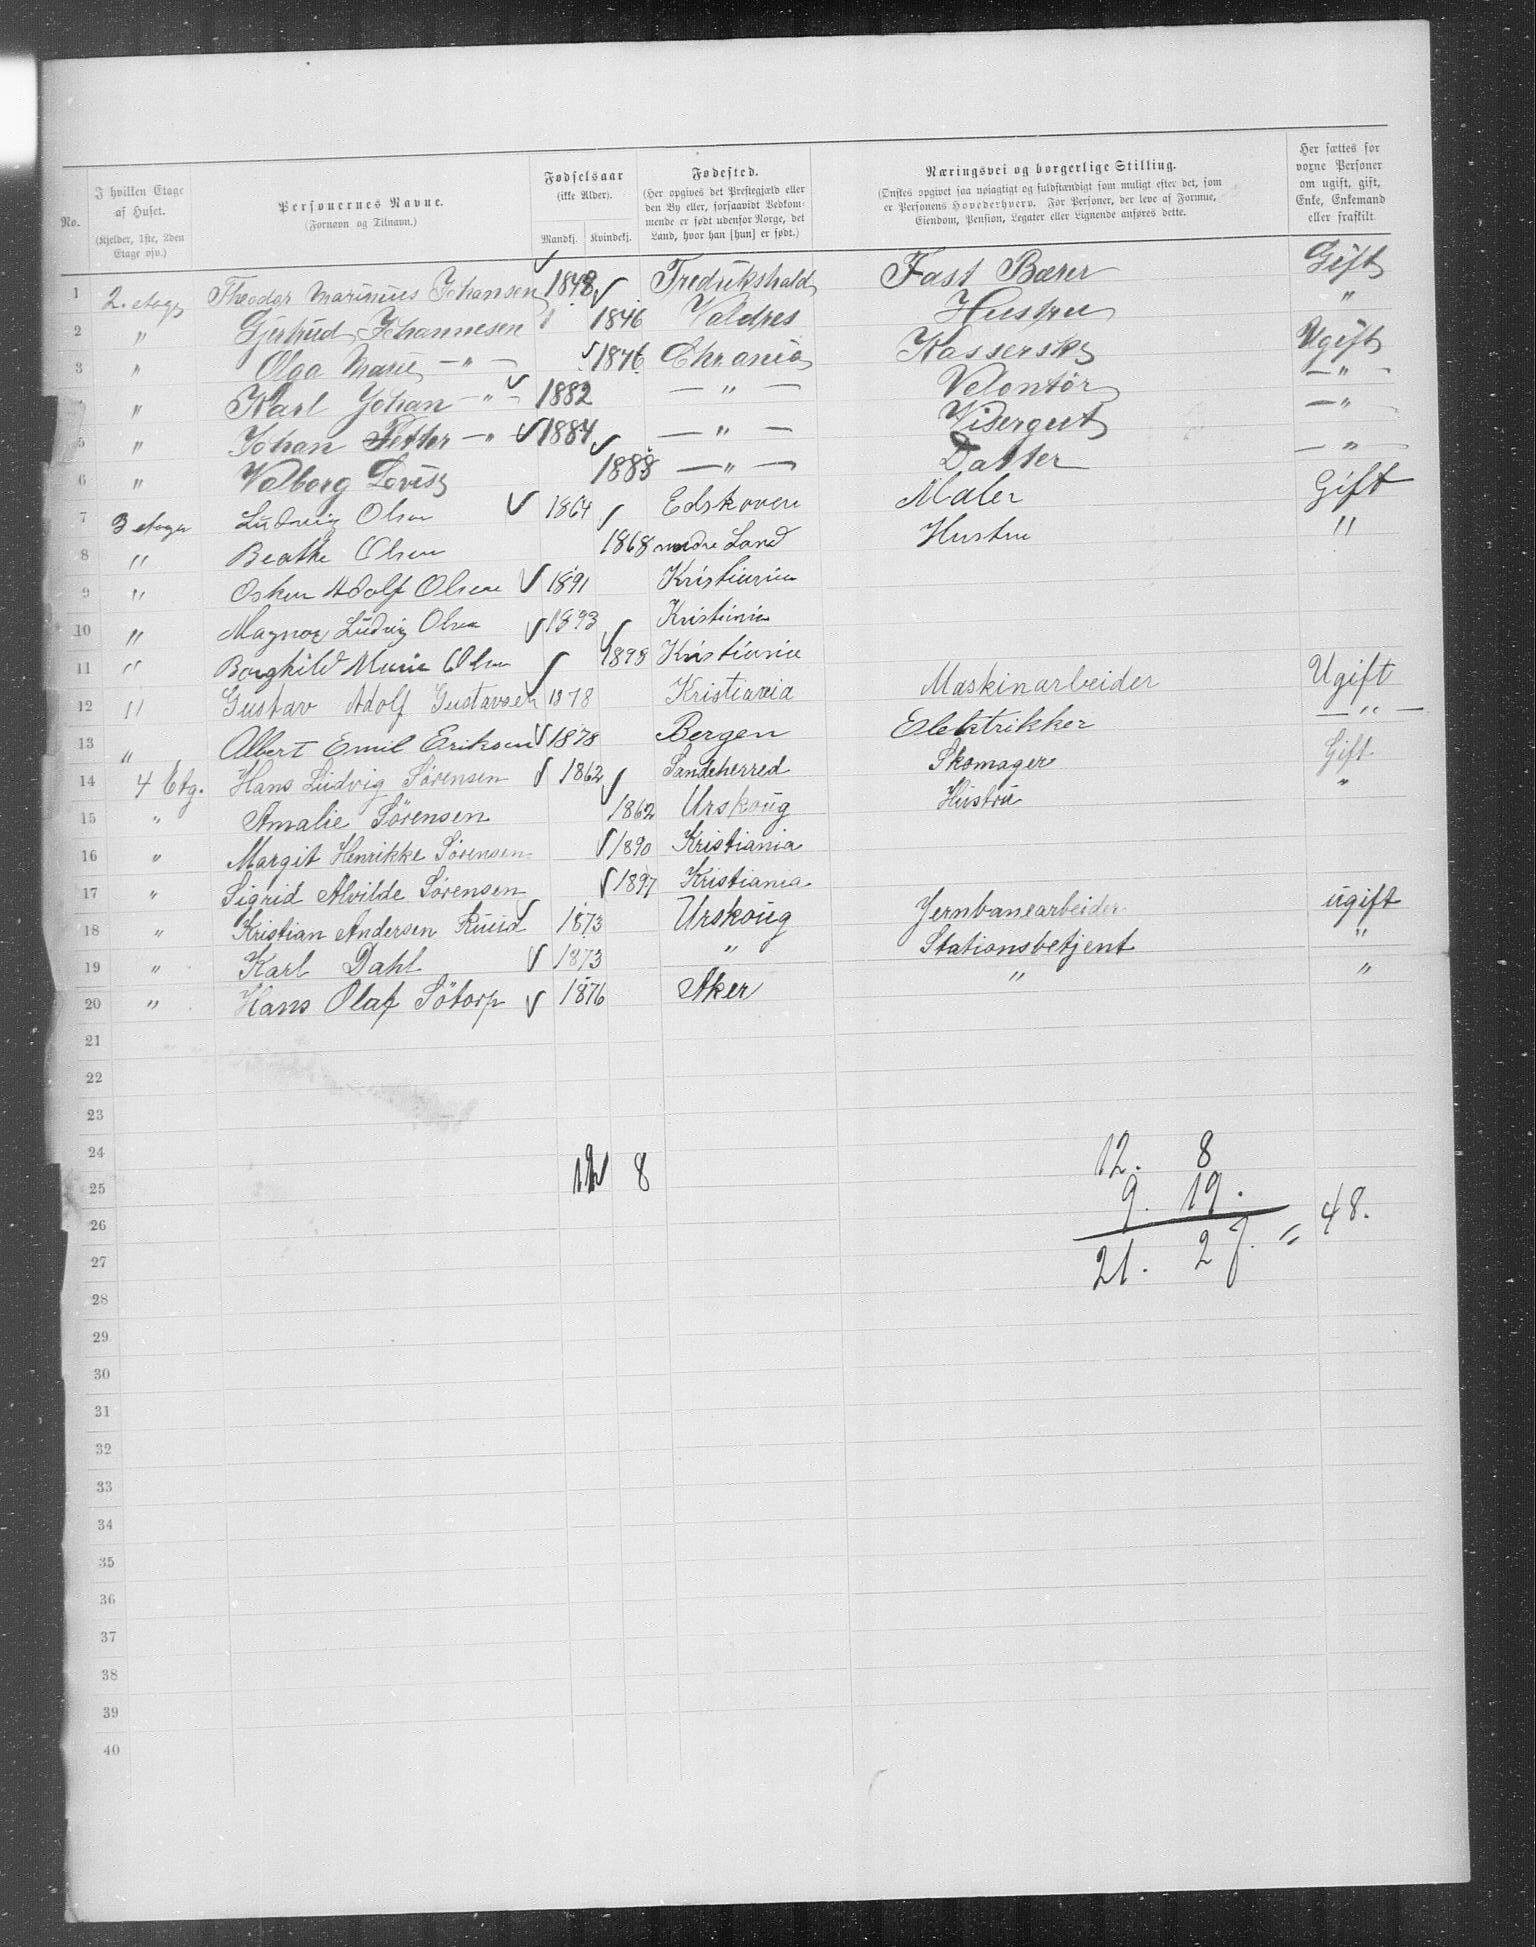 No. I hvilken Etage af Huset. (Kjelder, 1ste, 2den Etage osv.) Personernes Navne. (Fornavn og Tilnavn.) Fødselsaar (ikke Alder). Mandkj. Kvindekj. Fødested. (Her opgives det Prestegjæld eller den By eller, forsaavidt Vedkommende er født udenfor Norge, det Land, hvor han [hun] er født.) Næringsvei og borgerlige Stilling. (Ønskes opgivet saa nøiagtigt og fuldstændigt som muligt efter det, som er Personens Hovederhverv. For Personer, der leve af Formue, Eiendom, Pension, Legater eller Lignende anføres dette. Her sættes for voxne Personer om ugift, gift, Enke, Enkemand eller fraskilt.
1 2. etage Theodor Marinius Johansen 1848 Fredrikshald Fast Bærer Gift
2 " Gjertrud Johannesen 1846 Valdres Hustru "
3 " Olga Marie — " — 1876 Chrania Kasserske Ugift
" Karl Johan — " — 1882 — " — Volontør — " —
5 " Johan Petter — " 1884 — " — Visergut — "
6 " Valborg Lovise 1888 — " — Datter — " —
7 3 etage Ludvig Olsen 1864 Edskoven Maler Gift
8 " Beathe Olsen 1868 nordre Land Hustru "
9 " Oskar Adolf Olsen 1891 Kristiania
10 " Magnor Ludvig Olsen 1893 Kristiania
11 " Borghild Marie Olsen 1898 Kristiania
12 " Gustav Adolf Gustavsen 1878 Kristiania Maskinarbeider Ugift
13 " Albert Emil Eriksen 1878 Bergen Elektrikker — " —
14 4 Etg. Hans Ludvig Sørensen 1862 Sandeherred Skomager Gift
15 " Amalie Sørensen 1862 Urskoug Hustru "
16 " Margit Henrikke Sørensen 1890 Kristiania
17 " Sigrid Alvilde Sørensen 1897 Kristiania
18 " Kristian Andersen Ruud 1873 Urskoug Jernbanearbeider ugift
19 " Karl Dahl 1873 " Stationsbetjent "
20 " Hans Olaf Sötorp 1876 Aker " "
21
22
23
24 12. 8
25 12 8 9. 19.
26 21. 27. = 48.
27
28
29
30
31
32
33
34
35
36
37
38
39
40